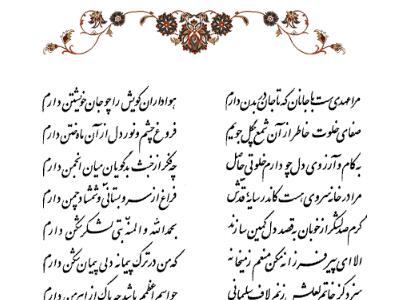 مرا عهدیست با جانان که تا جان در بدن دارم هواداران کویش را چو جان خویشتن دارم
صفای خلوت خاطر از آن شمع چگل جویم فروغ چشم و نور دل از آن ماه ختن دارم
به کام و آرزوی دل چو دارم خلوتی حاصل چه فکر از خبث بدگویان میان انجمن دارم
مرا در خانه سروی هست کاندر سایهٔ قدش فراغ از سرو بستانی و شمشاد چمن دارم
گرم صد لشکر از خوبان به قصد دل کمین سازند بحمدالله و المنه بتی لشکرشکن دارم
الا ای پیر فرزانه مکن منعم ز میخانه که من در ترک پیمانه دلی پیمان‌شکن دارم
سزد کز خاتم لعلش زنم لاف سلیمانی چو اسم اعظمم باشد چه باک از اهرمن دارم